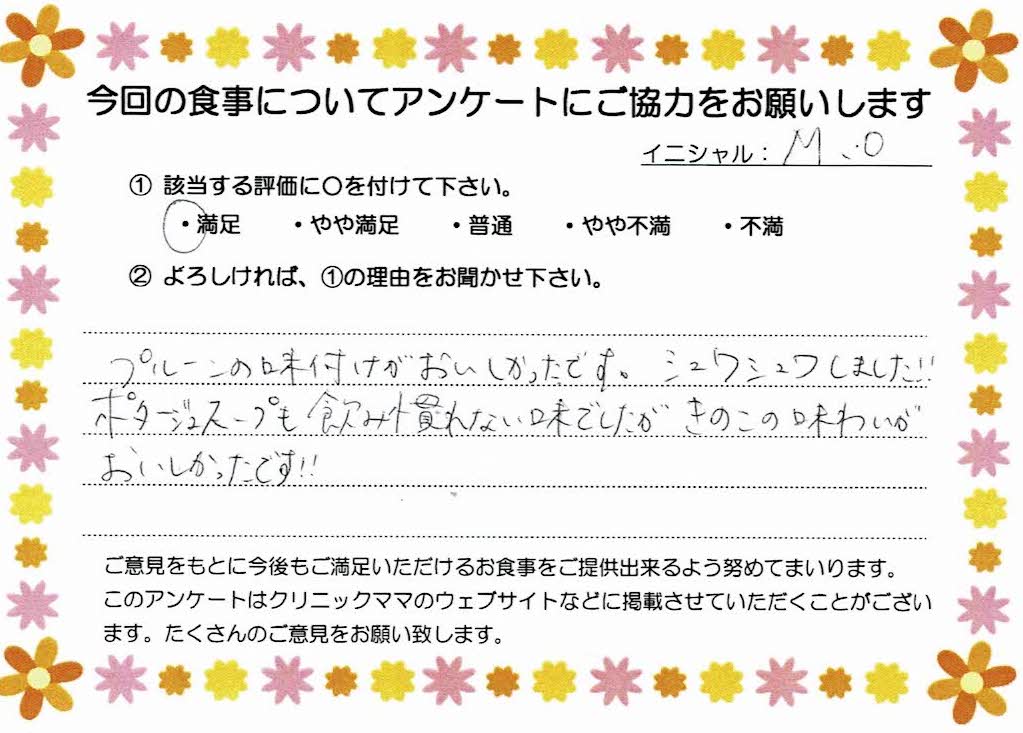 今回の食事についてアンケートにご協力をお願いします
イニシャル： M.O
① 該当する評価に〇を付けて下さい。
・満足 ・やや満足 ・普通 ・やや不満 ・不満
② よろしければ、①の理由をお聞かせ下さい。
プルーンの味付けがおいしかったです。シュワシュワしました!!
ポタージュスープも飲み慣れない味でしたが きのこの味わいが
おいしかったです!!
ご意見をもとに今後もご満足いただけるお食事をご提供出来るよう努めてまいります。
このアンケートはクリニックママのウェブサイトなどに掲載させていただくことがござい
ます。たくさんのご意見をお願い致します。